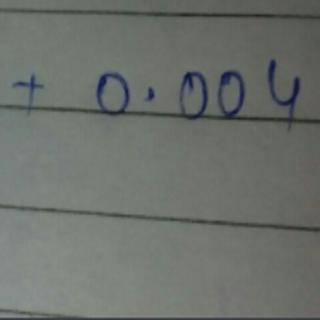 + 0.004